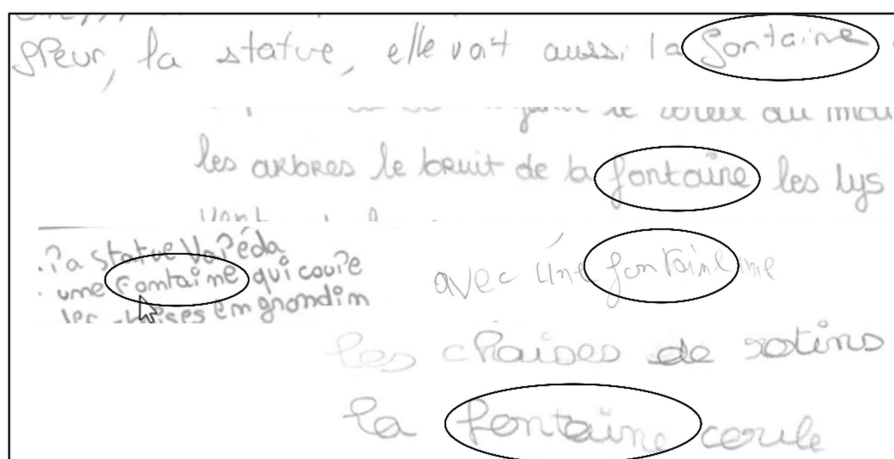 fleur, la statue, elle voit aussi la fontaine
les arbres le bruit de la fontaine les lys
la statue Valéda
une fontaine qui coule
les chaises en grondin
avec une fontaine
les chaises de rotins
la fontaine coule